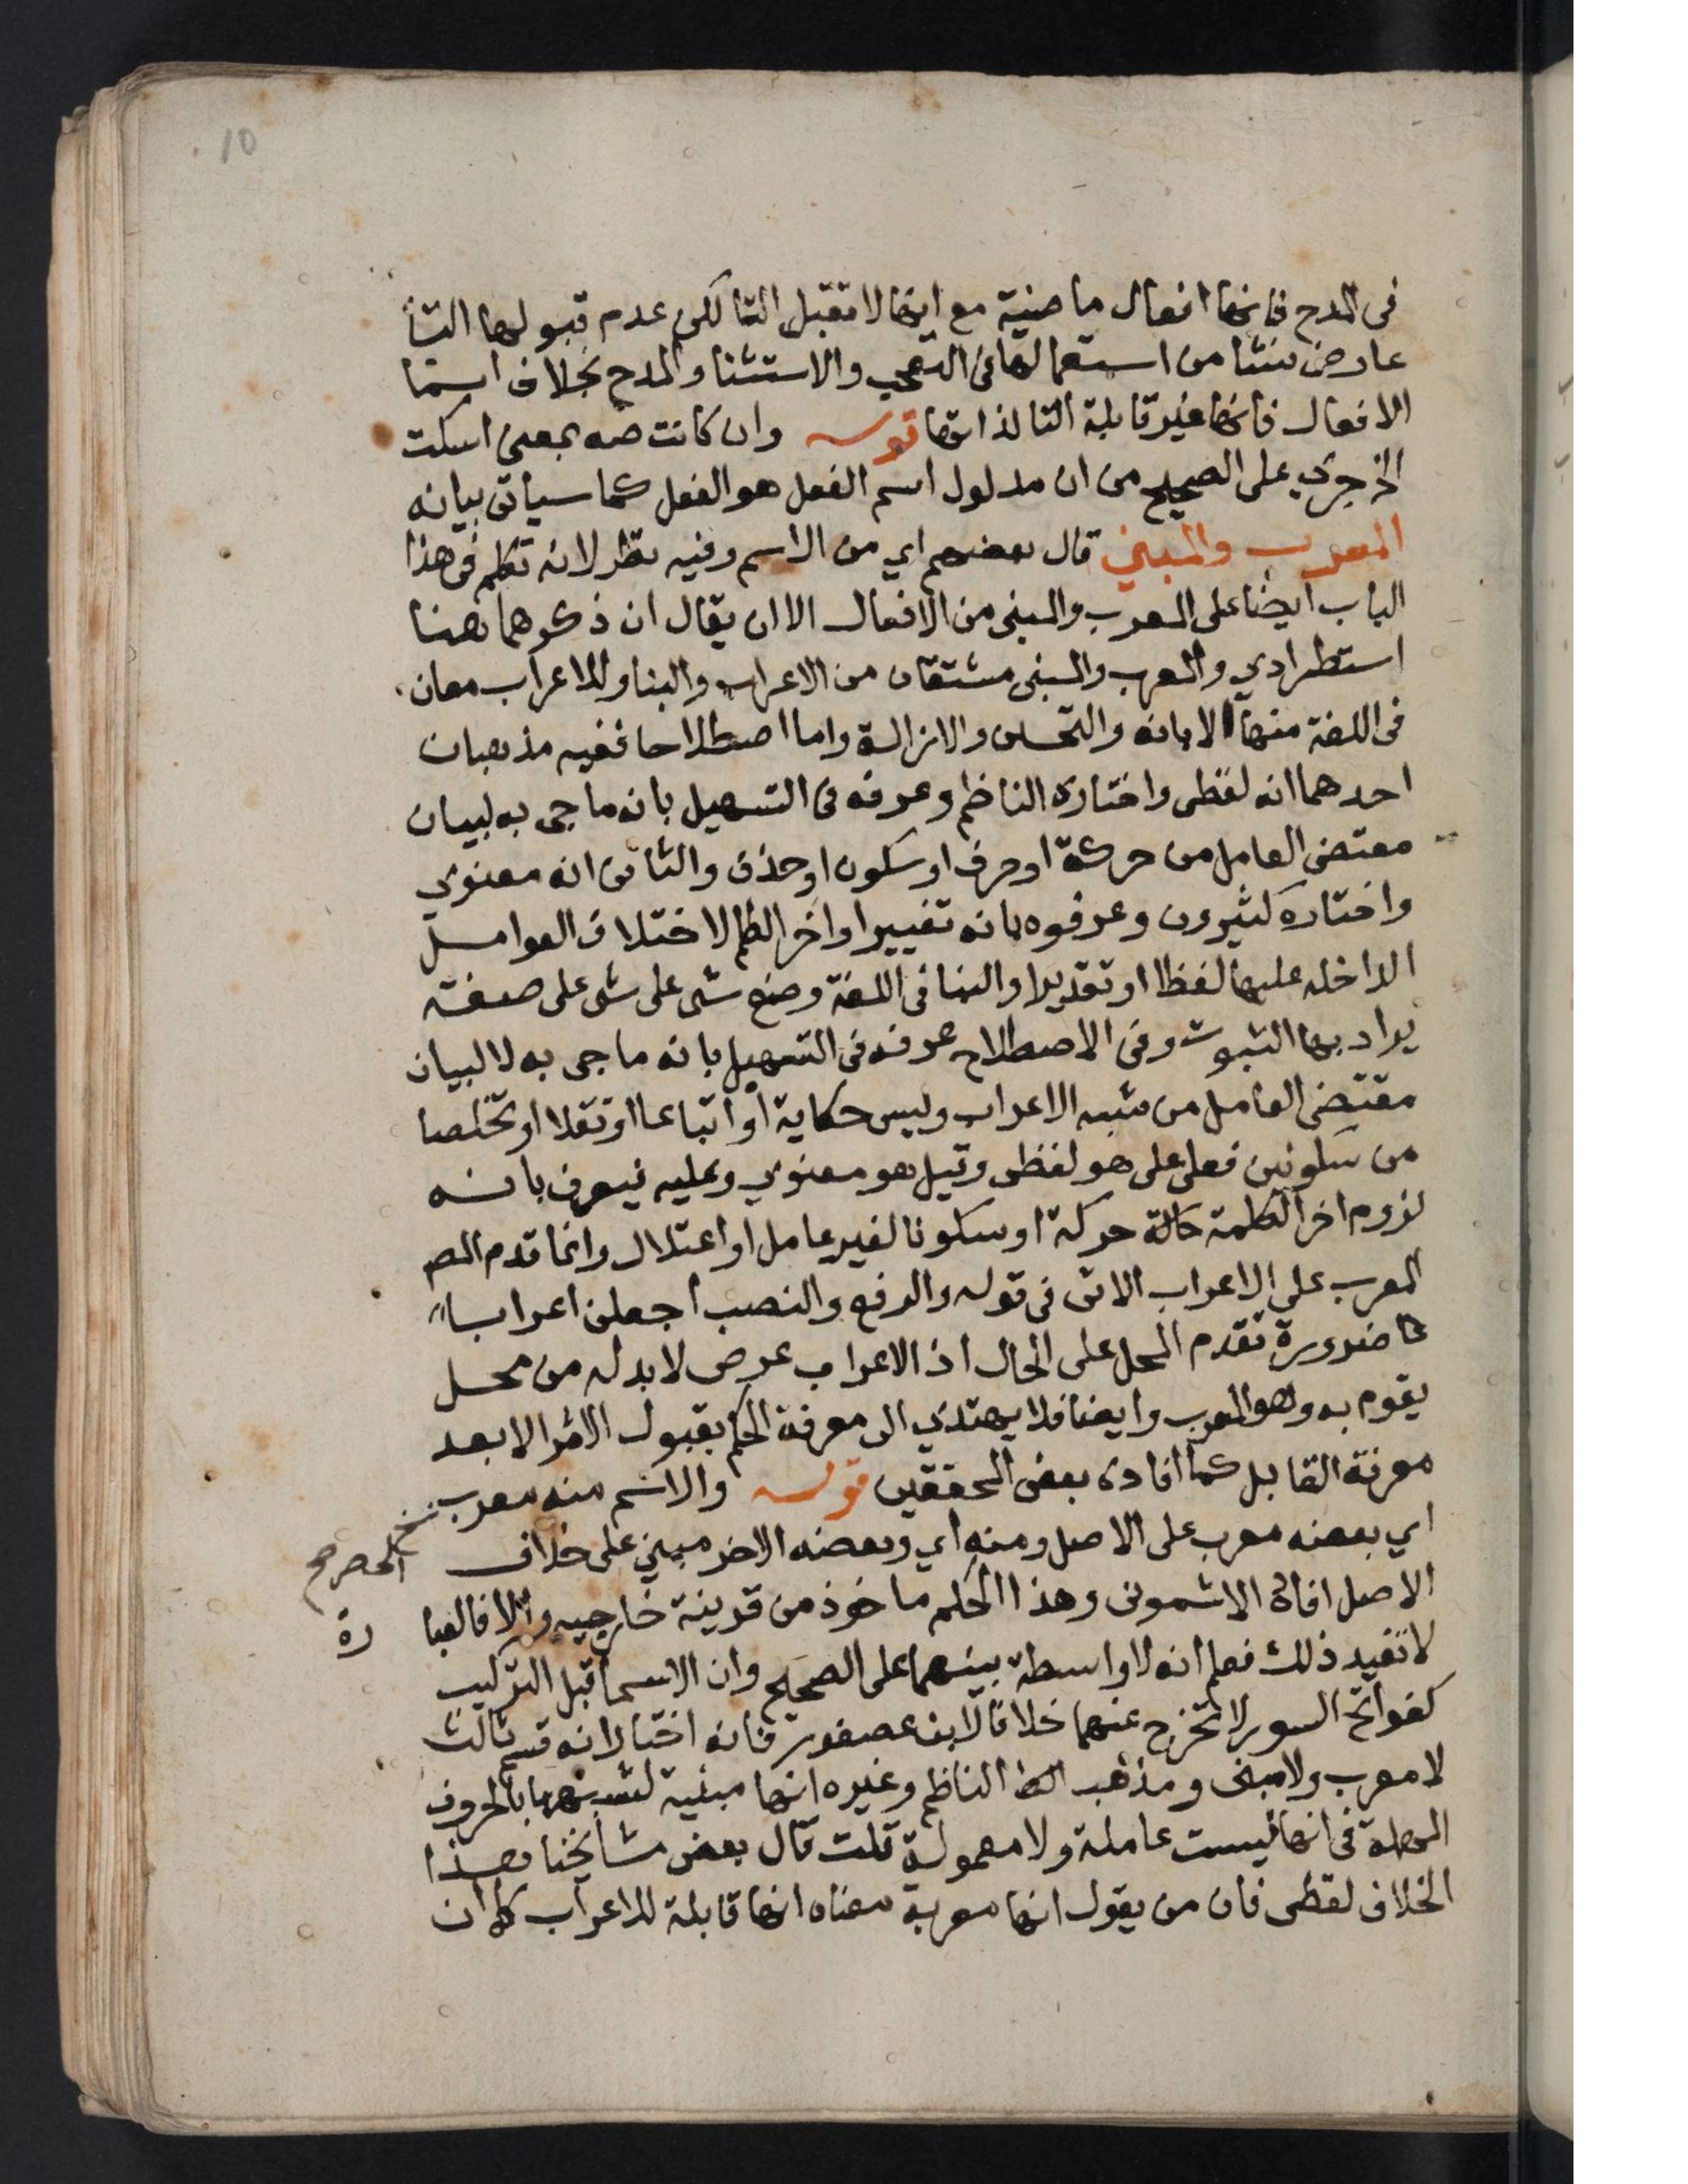 10
فى المدح فانها افعال ماضية مع انها لا تقبل التا لكن عدم قبولها التا
عارض نشا من استعمالها فى التعجب والاستثنا والمدح بخلاف اسما
الافعال فانها غير قابلة التا لذاتها قوله وان كانت صه بمعنى اسكت
الخ جرى على الصحيح من ان مدلول اسم الفعل هو الفعل كما سياتى بيانه
المعرب والمبني قال بعضهم اي من الاسم وفيه نظر لانه تكلم فى هذا
الباب ايضا على المعرب والمبنى من الافعال الا ان يقال ان ذكرهما هنا
استطرادي والمعرب والمبنى مشتقان من الاعراب والبنا وللاعراب معان
فى اللغة منها الابانه والتحسين والازالة واما اصطلاحا ففيه مذهبان
احدهما انه لفظى واختاره الناظم وعرفه فى التسهيل بانه ما جى به لبيان
مقتضى العامل من حركة او حرف او سكون او حذف والثانى انه معنوي
واختاره كثيرون وعرفوه بانه تغيير اواخر الكلم لاختلاف العوامل
الداخله عليها لفظا او تقديرا والبنا فى اللغة وضع شى على شى على صفة
يراد بها الثبوت وفى الاصطلاح عرفه فى التسهيل بانه ما جى به لا لبيان
مقتضى العامل من شبه الاعراب وليس حكاية او اتباعا او نقلا او تخلصا
من سكونين فعلى هو لفظى وقيل هو معنوي وعليه فيعرف بانه
لزوم اخر الكلمة حالة حركة او سكونا لغير عامل او اعتلال وانما قدم المص
المعرب على الاعراب الاتى فى قوله والرفع والنصب اجعلن اعرابا
ضرورة تقدم المحل على الحال اذ الاعراب عرض لا بد له من محل
يقوم به وهو المعرب وايضا فلا يهتدي الى معرفة الحكم بقبول الاثر الا بعد
معرفة القابل كما افاده بعض المحققين قوله والاسم منه معرب
اي بعضه معرب على الاصل ومنه اي وبعضه الاخر مبني على خلاف
الاصل افاده الاشمونى وهذا الحكم ماخوذ من قرينة خارجيه والا فالعبا
رة
الحصر صح
لا تفيد ذلك فعلم انه لا واسطة بينهما على الصحيح وان الاسما قبل التركيب
كفواتح السور لا تخرج عنهما خلافا لابن عصفور فانه اختار انه قسم ثالث
لا معرب ولا مبنى ومذهب الناظم وغيره انها مبنية لشبهها بالحروف
المهملة فى انها ليست عاملة ولا معمولة قلت قال بعض مشايخنا وهذا
الخلاف لفظى فان من يقول انها معربة معناه انها قابلة للاعراب كما ان